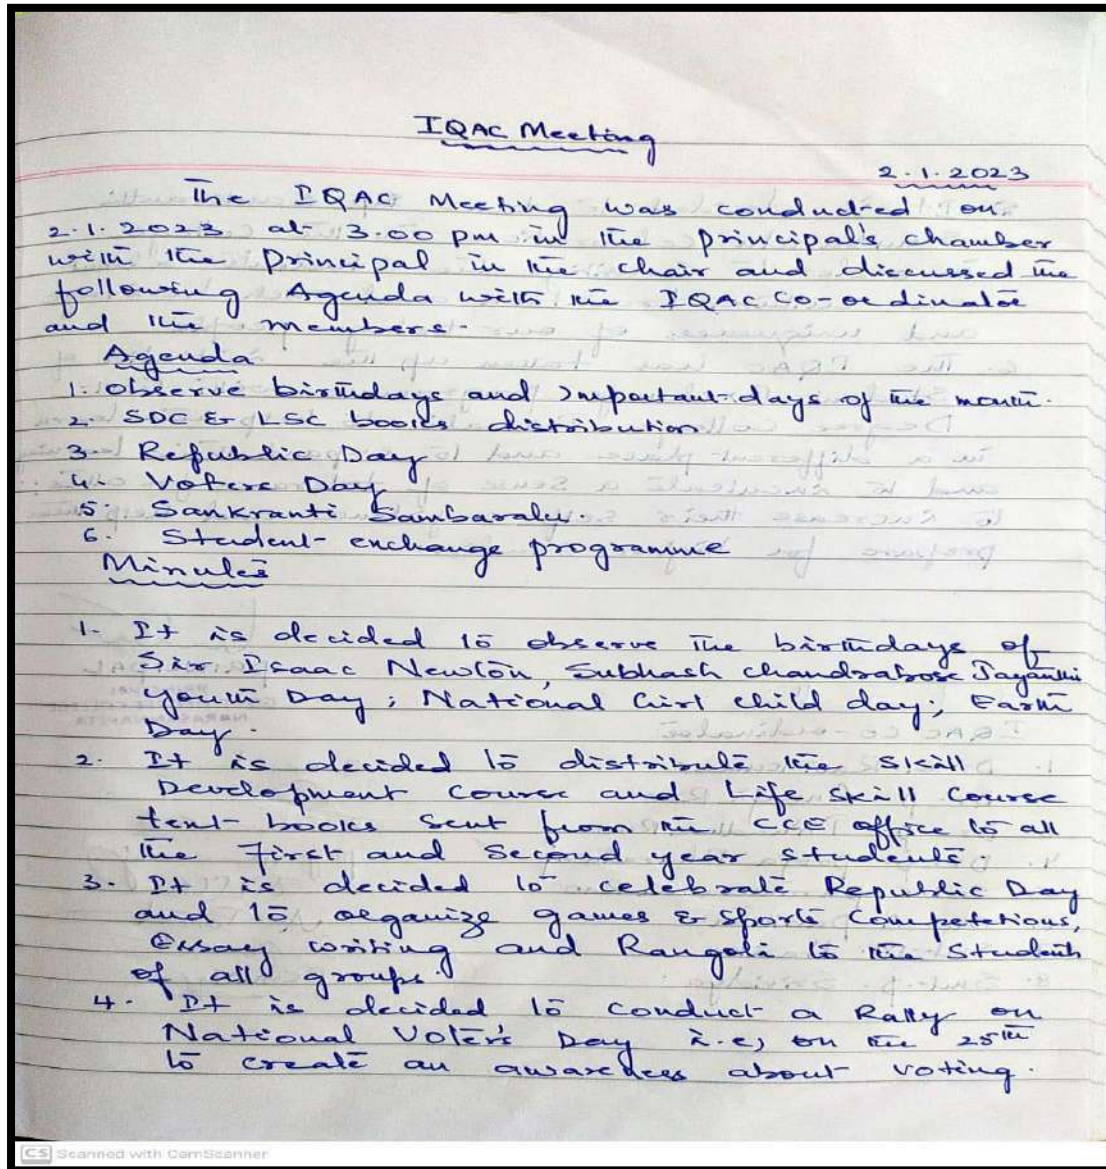 IQAC Meeting
2.1.2023
The IQAC Meeting was conducted on
2.1.2023 at 3.00 pm in the principal's chamber
with the principal in the chair and discussed the
following Agenda with the IQAC Co-ordinator
and the members.
Agenda
1. Observe birthdays and Important days of the month.
2. SDC & LSC books distribution
3. Republic Day
4. Voters Day
5. Sankranti Sambaralu.
6. Student exchange programme
Minutes
1. It is decided to observe the birthdays of
Sir Isaac Newton, Subhash chandrabose Jayanthi
youth Day; National Girl child day; Earth
Day.
2. It is decided to distribute the Skill
Development Course and Life skill Course
text books Sent from the CCE office to all
the First and Second year students
3. It is decided to celebrate Republic Day
and to organize games & sports Competetions,
Essay writing and Rangoli to the Students
of all groups.
4. It is decided to conduct a Rally on
National Voter's Day i.e, on the 25th
to create an awareness about voting.
CS Scanned with CamScanner